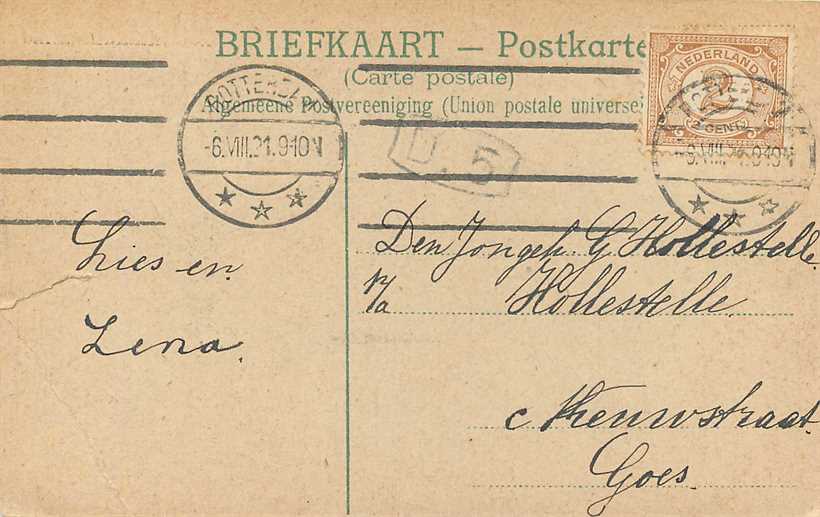 BRIEFKAART — Postkarte
(Carte postale)
Algemeene Postvereeniging (Union postale universelle)
ROTTERDAM
-6.VIII.21.9-10N
D. 5
NEDERLAND
2
CENT
Lies en
Lena.
Den Jongeh. G. Hollestelle
p/a Hollestelle.
Nieuwstraat
Goes.